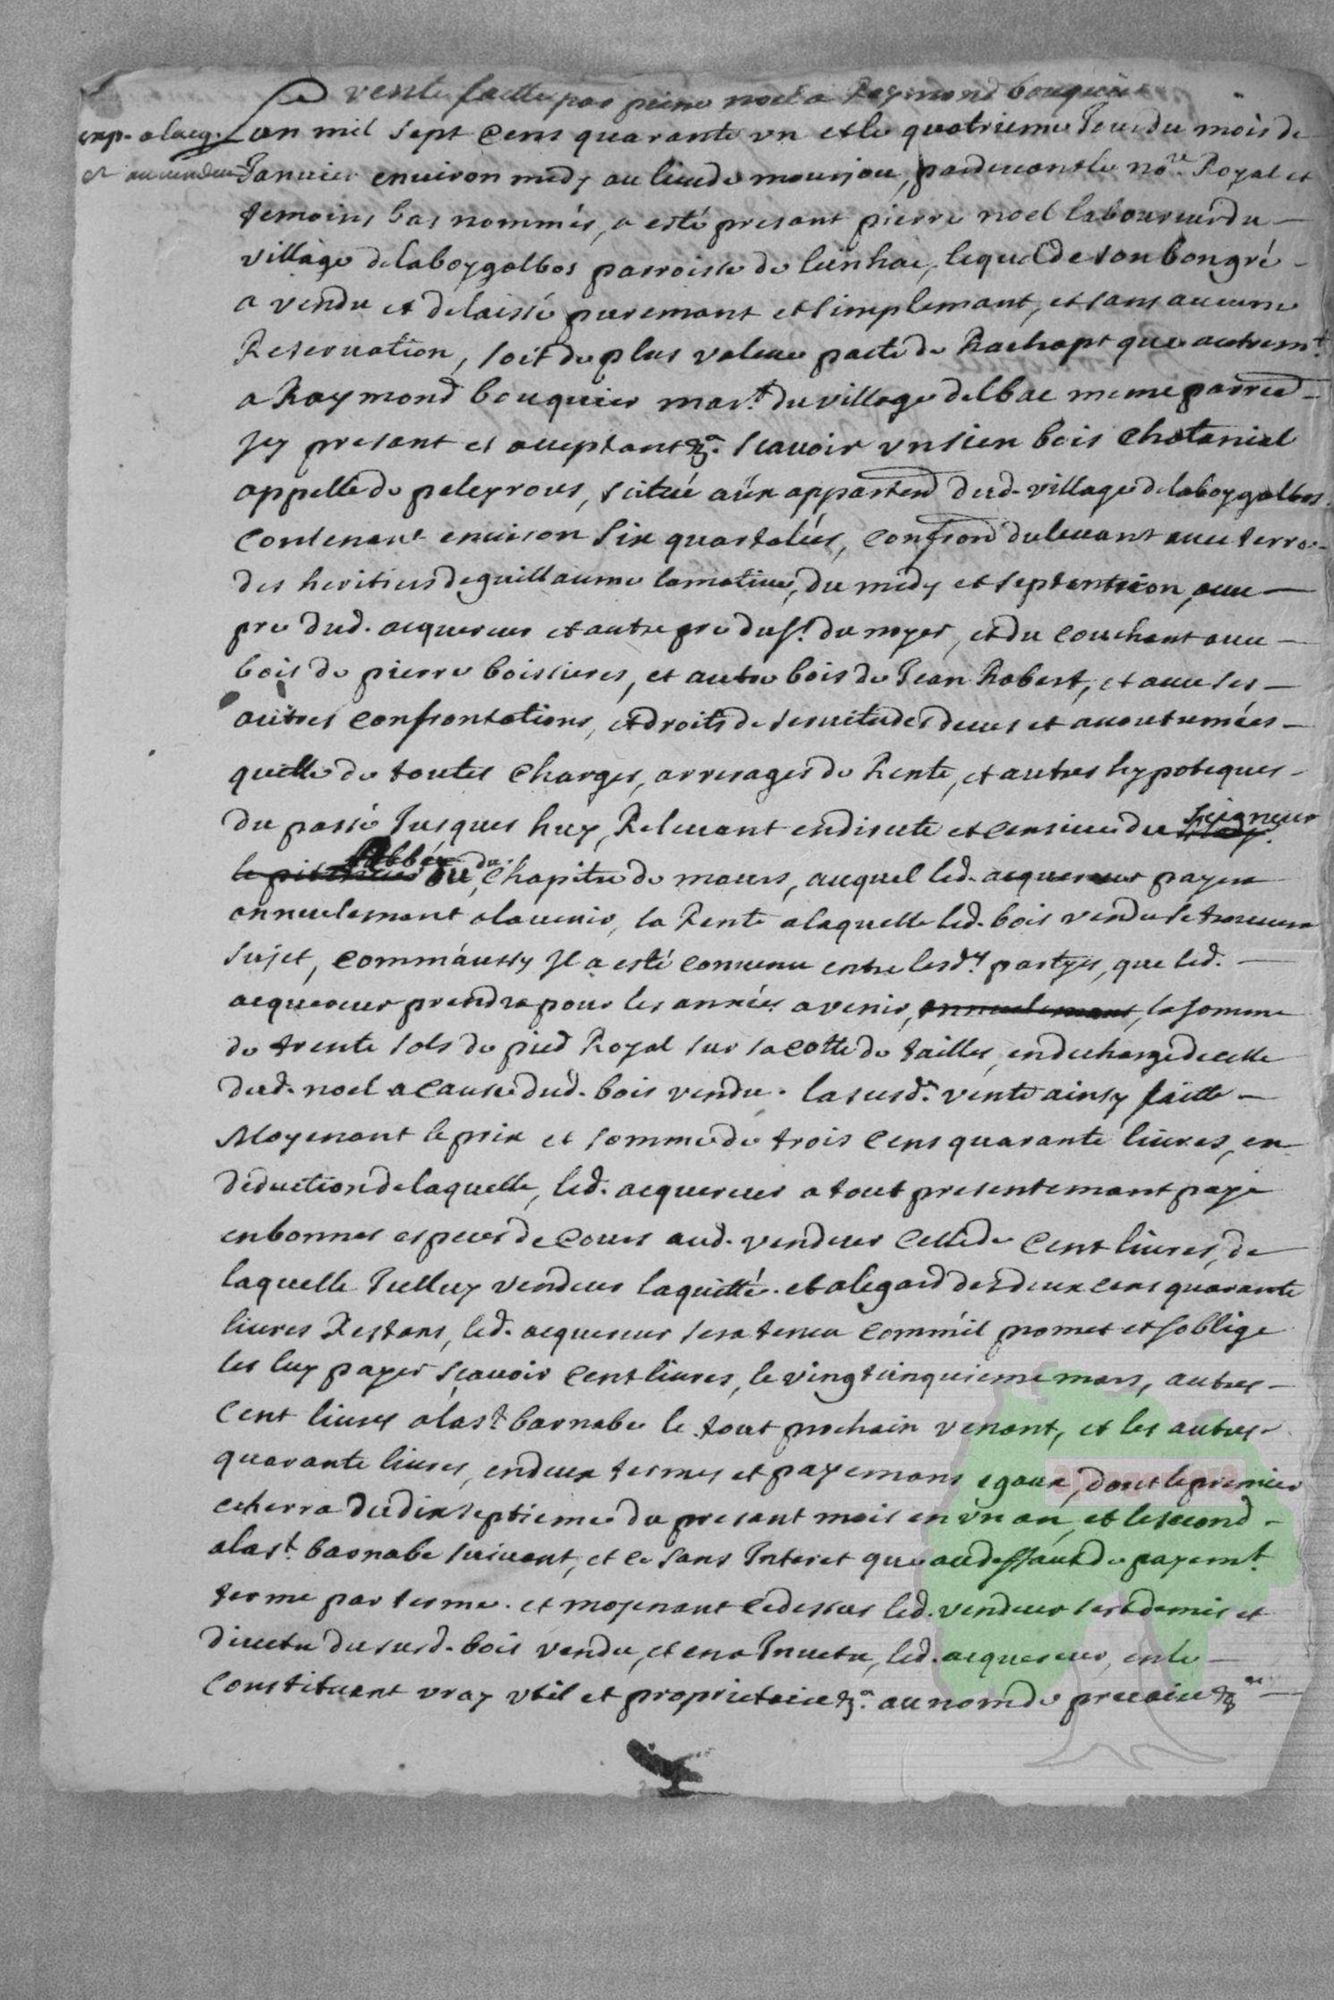 vente faitte par pierre noel a Raymond bouquier
exp. a lacq.r
et au vendeur
Lan mil sept cens quarante un et le quatrieme Jour du mois de
Janvier environ midy au lieu de mourjou, pardevant le no.re Royal et
temoins bas nommés, a esté presant pierre noel laboureur du
village de laboygalbos parroisse de leinhac, lequel de son bon gré
a vendu et delaissé puremant et simplemant, et sans aucune
Reservation, soit de plus value pacte de Rachapt que autrem.t
a Raymond bouquier mar.t du village delbac meme parred
Jcy presant et acceptant &.a scavoir un sien bois chatanial
appellé de peleyrous, scitué aux appartend dud. village de laboygalbos
contenant environ six quartaliés, confrond du levant avec terre
des heritiers de guillaume lamative, du midy et septantrion, avec
pre dud. acquereur et autre pre du s.r du noyer, et du couchant avec
bois de pierre boissieres, et autre bois de Jean Robert, et avec ses
autres confrontations, et droits de servitudes deues et accoutumées
quitte de toutes charges, arrerages de Rente, et autres hypoteques
du passé Jusques huy, Relevant en directe et censive du seigneur
labbé du du chapitre de maurs, auquel led. acquereur payera
annuelemant a lavenir, la Rente a laquelle led. bois vendu se trouvera
sujet, comm'aussy Jl a esté convenu entre lesd.s partyes, que led.
acquereur prendra pour les années a venir, annuelemant, la somme
de trente sols de pied Royal sur sa cotte de tailles, en decharge de celle
dud. noel a cause dud. bois vendu. la susd.e vente ainsy faitte
Moyenant le prix et somme de trois cens quarante livres, en
deduction de laquelle, led. acquereur a tout presentemant payé
en bonnes especes de cours aud. vendeur celle de cent livres, de
laquelle Jcelluy vendeur la quitté. et a legard des deux cens quarante
livres Restans, led. acquereur sera tenu comm'il promet et soblige
les luy payer scavoir cent livres, le vingt cinquieme mars, autres
cent livres a la s.t barnabe le tout prochain venant, et les autres
quarante livres, en deux termes et payemans egaux, dont le premier
echerra du dix septieme du presant mois en un an, et le second
a la s.t barnabe suivant, et ce sans Interet que au deffaut de payem.t
terme par terme. et moyenant ce dessus led. vendeur sest demis et
divetu du susd. bois vendu, et en a Jnvetu, led. acquereur, en le
constituant vray util et proprietaire &.a au nom de precaire &.a